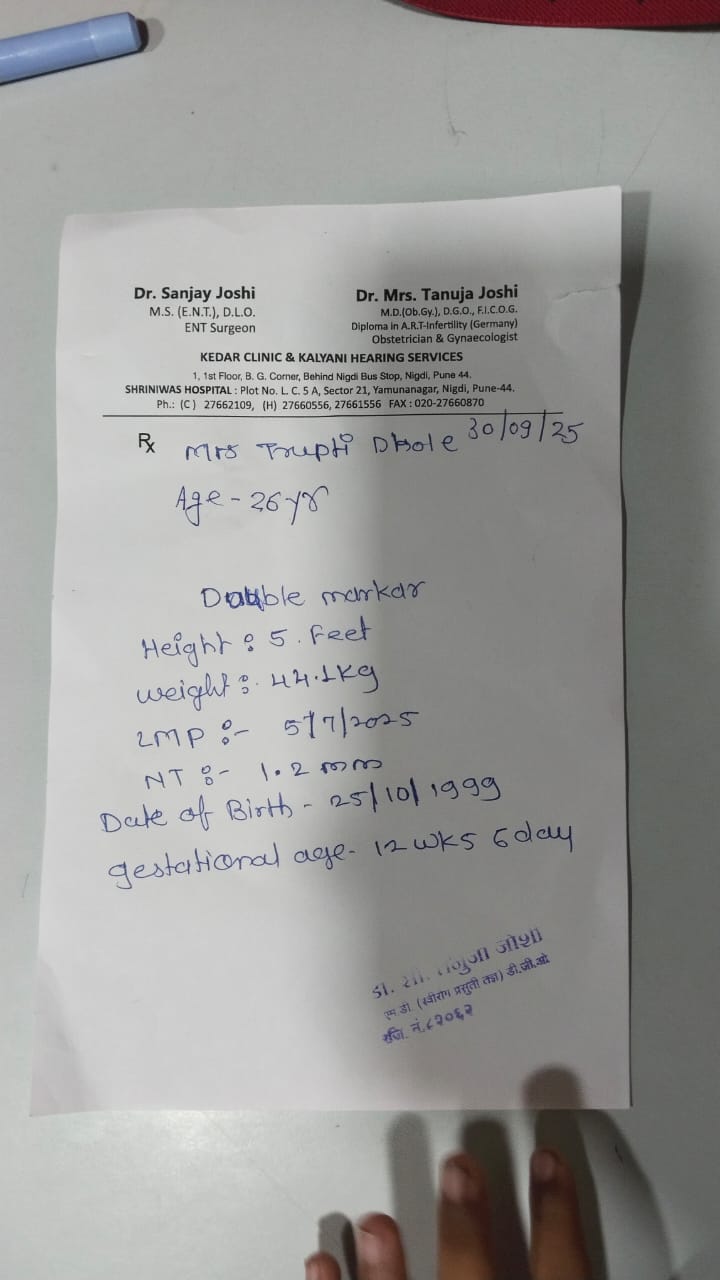 Dr. Sanjay Joshi
M.S. (E.N.T.), D.L.O.
ENT Surgeon
Dr. Mrs. Tanuja Joshi
M.D.(Ob.Gy.), D.G.O., F.I.C.O.G.
Diploma in A.R.T-Infertility (Germany)
Obstetrician & Gynaecologist
KEDAR CLINIC & KALYANI HEARING SERVICES
1, 1st Floor, B. G. Corner, Behind Nigdi Bus Stop, Nigdi, Pune 44.
SHRINIWAS HOSPITAL : Plot No. L. C. 5 A, Sector 21, Yamunanagar, Nigdi, Pune-44.
Ph.: (C) 27662109, (H) 27660556, 27661556 FAX : 020-27660870
Rx Mrs Trupti Dhole 30/09/25
Age - 26 yr
Double markar
Height : 5. Feet
weight : 44.1kg
LMP :- 5/7/2025
NT :- 1.2 mm
Date of Birth - 25/10/1999
gestational age - 12 wks 6 day
डॉ. सौ. जोशी
एम.डी. (स्त्रीरोग प्रसुती तज्ञ) डी.जी.ओ.
रजि. नं. ८२०६२